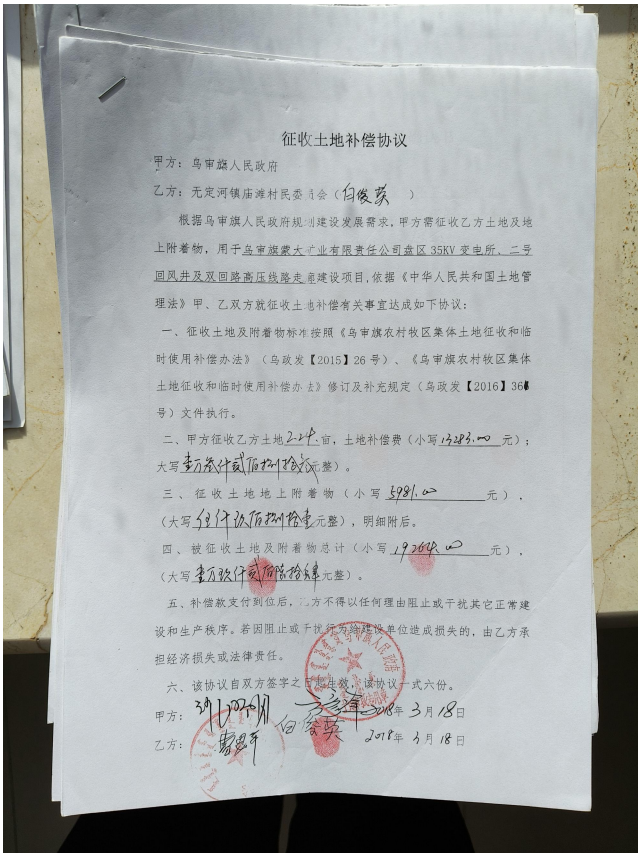 征收土地补偿协议
甲方：乌审旗人民政府
乙方：无定河镇庙滩村民委员会（白俊英 ）
根据乌审旗人民政府规划建设发展需求，甲方需征收乙方土地及地
上附着物，用于乌审旗蒙大矿业有限责任公司盘区35KV变电所、二号
回风井及双回路高压线路走廊建设项目，依据《中华人民共和国土地管
理法》甲、乙双方就征收土地补偿有关事宜达成如下协议：
一、征收土地及附着物标准按照《乌审旗农村牧区集体土地征收和临
时使用补偿办法》（乌政发【2015】26号）、《乌审旗农村牧区集体
土地征收和临时使用补偿办法》修订及补充规定（乌政发【2016】36
号）文件执行。
二、甲方征收乙方土地2.24亩，土地补偿费（小写13283.00元）；
大写壹万叁仟贰佰捌拾 元整）。
三、征收土地地上附着物（小写5981.00元），
（大写伍仟玖佰捌拾壹元整），明细附后。
四、被征收土地及附着物总计（小写19264.00元），
（大写壹万玖仟贰佰陆拾肆元整）。
五、补偿款支付到位后，乙方不得以任何理由阻止或干扰其它正常建
设和生产秩序。若因阻止或干扰行为给建设单位造成损失的，由乙方承
担经济损失或法律责任。
六、该协议自双方签字之日起生效，该协议一式六份。
甲方： 2018年3月18日
乙方： 白俊英 2018年3月18日